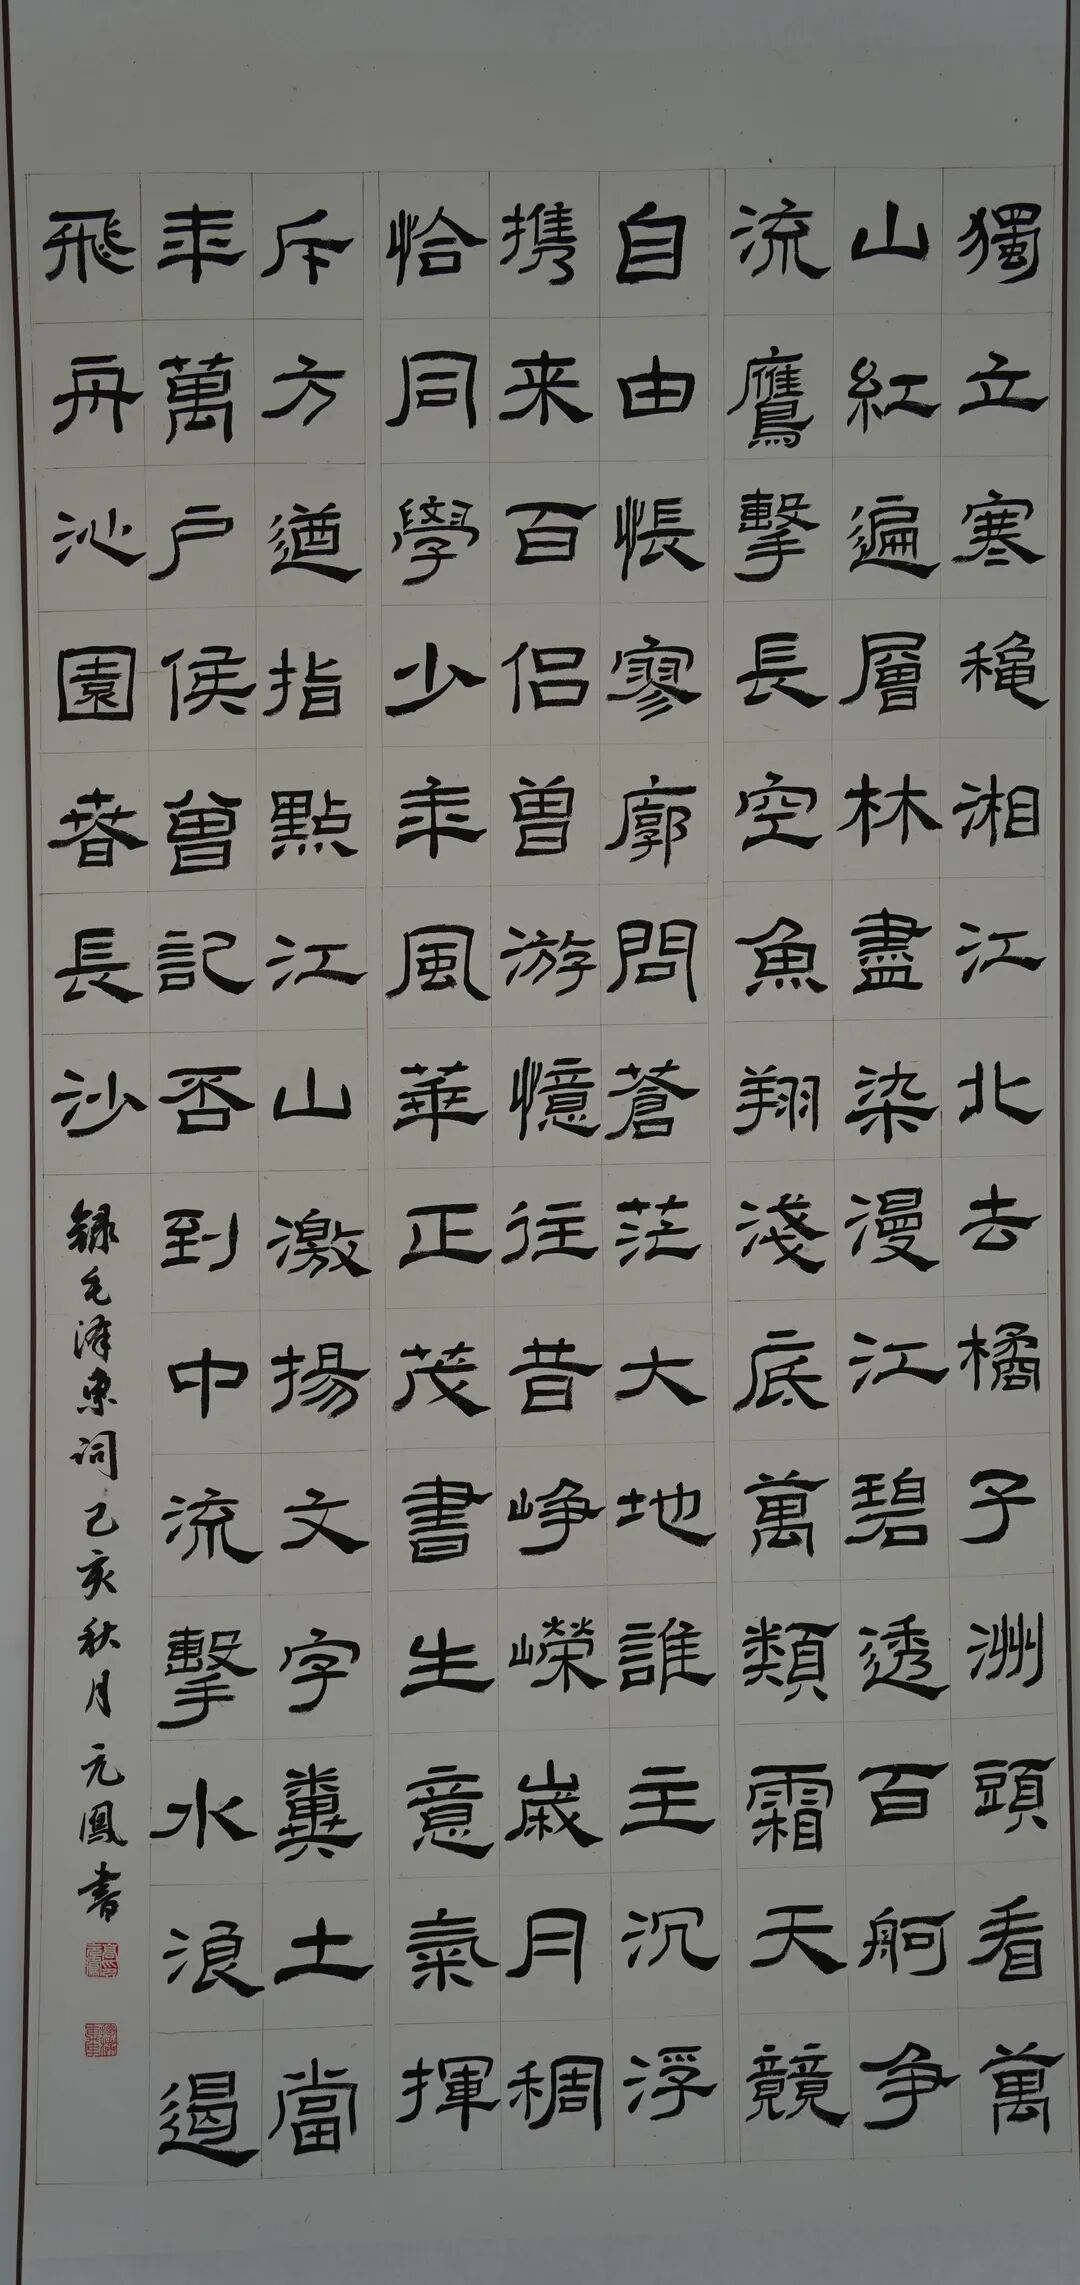 獨立寒穐湘江北去橘子洲頭看萬
山紅遍層林盡染漫江碧透百舸争
流鷹擊長空魚翔淺底萬類霜天競
自由悵寥廓問蒼茫大地誰主沉浮
携来百侣曽游憶往昔峥嶸歲月稠
恰同學少年風華正茂書生意氣揮
斥方遒指點江山激揚文字糞土當
年萬户侯曾記否到中流擊水浪遏
飛舟沁園春長沙
録毛泽東词己亥秋月元鳳書